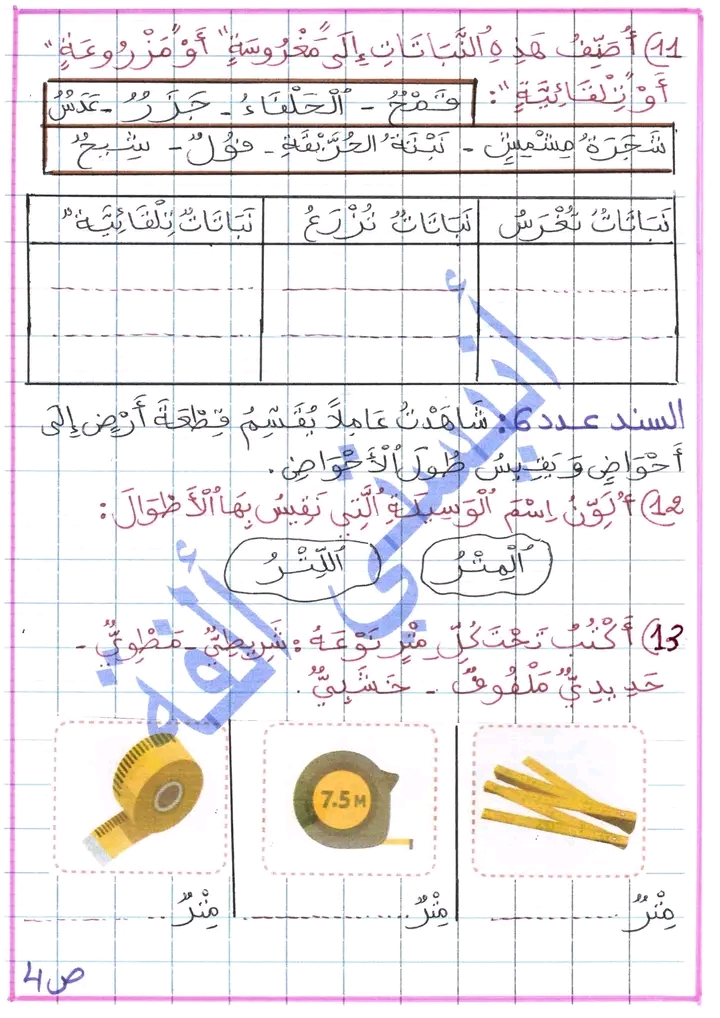 11) أُصَنِّفُ هَذِهِ النَّبَاتَاتِ إِلَى "مَغْرُوسَةٍ" أَوْ "مَزْرُوعَةٍ"
أَوْ "تِلْقَائِيَّةٍ":
قَمْحٌ - الْحَلْفَاءُ - جَزَرٌ - عَدَسٌ
شَجَرَةُ مِشْمِشٍ - نَبْتَةُ الحُرَّيْقَةِ - فُولٌ - شِيحٌ
نَبَاتَاتٌ تُغْرَسُ
نَبَاتَاتٌ تُزْرَعُ
نَبَاتَاتٌ تِلْقَائِيَّةٌ
السند عدد 6: شَاهَدْتُ عَامِلاً يُقَسِّمُ قِطْعَةَ أَرْضٍ إِلَى
أَحْوَاضٍ وَ يَقِيسُ طُولَ الْأَحْوَاضِ.
12) أُلَوِّنُ اِسْمَ الْوَسِيلَةِ الَّتِي نَقِيسُ بِهَا الْأَطْوَالَ:
الْمِتْرُ
اللِّتْرُ
13) أَكْتُبُ تَحْتَ كُلِّ مِتْرٍ نَوْعَهُ: شَرِيطِيٌّ - مَطْوِيٌّ -
حَدِيدِيٌّ مَلْفُوفٌ - خَشَبِيٌّ.
7.5M
مِتْرٌ ..............
مِتْرٌ ..............
مِتْرٌ ..............
ص 4